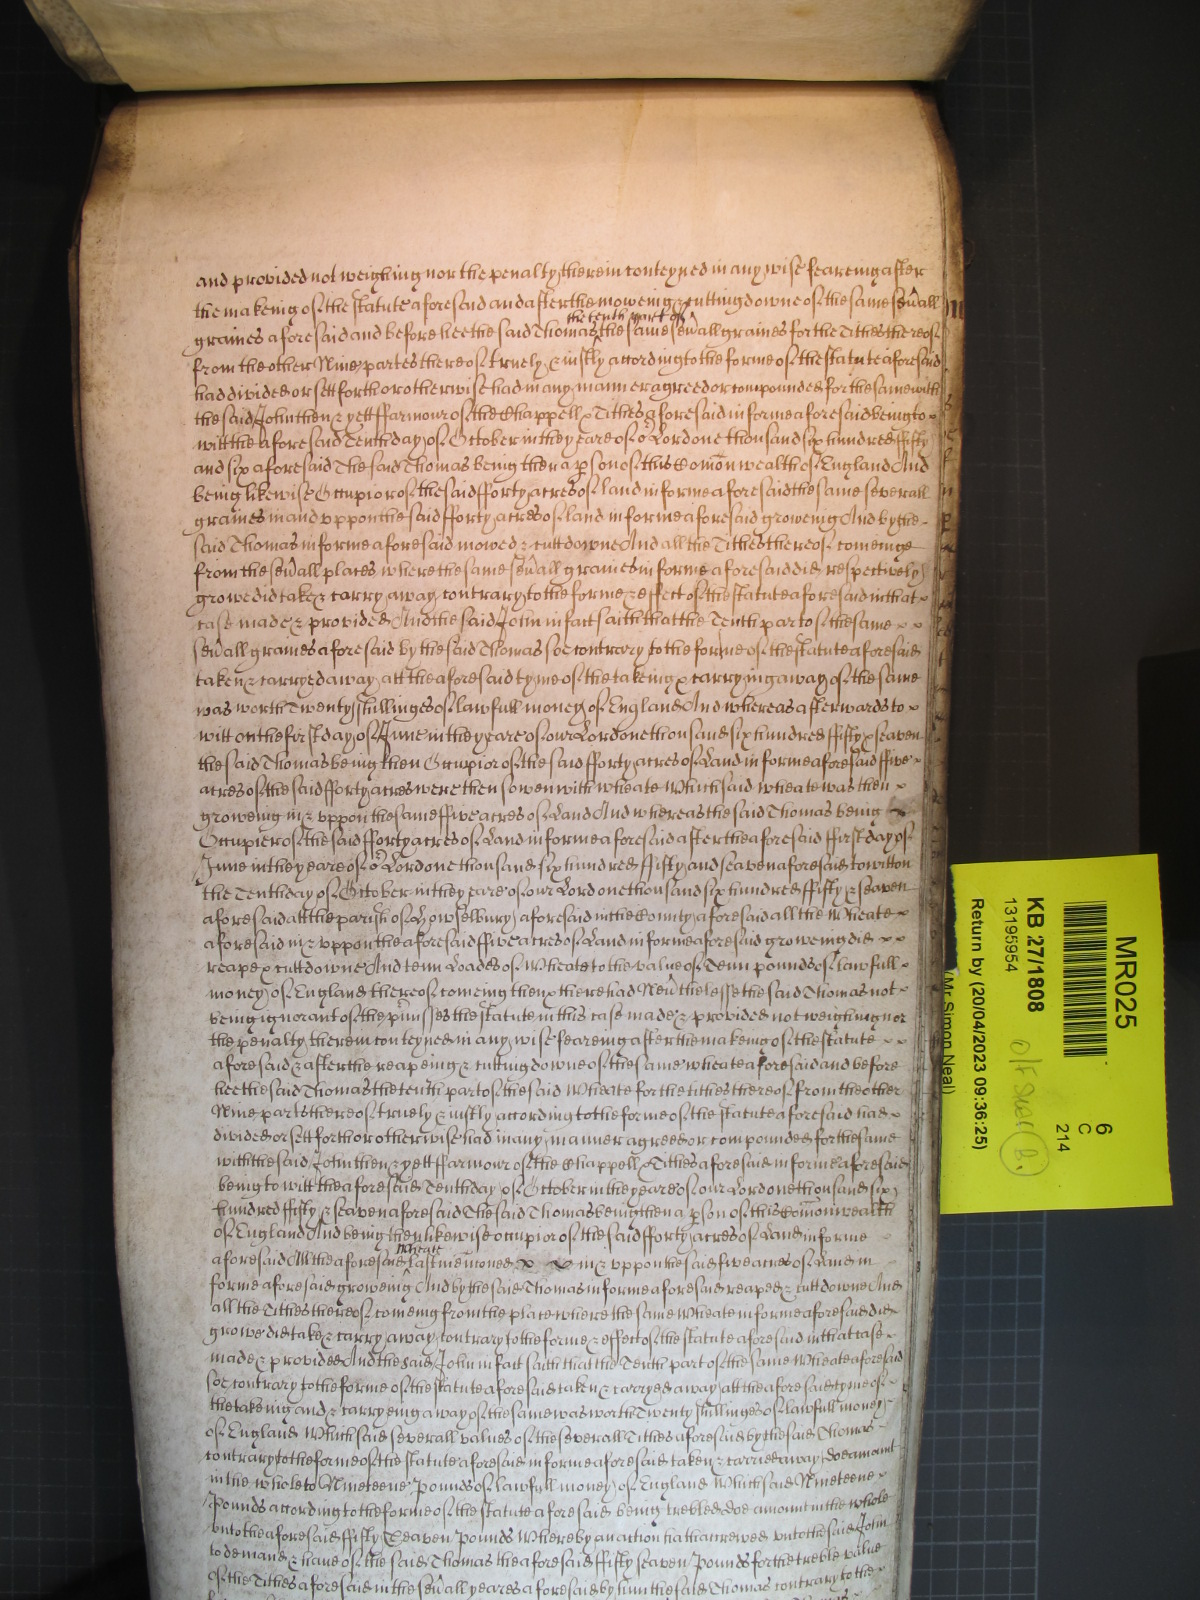 and provided not weighing nor the penalty therein conteyned in any wise feareing after
the makeing of the statute aforesaid and after the moweing & cutting downe of the same sev̄all
the tenth part of
graines aforesaid and before hee the said Thomas the same sev̄all graines for the Tithes thereof
from the other Nine partes thereof truely & iustly according to the forme of the statute aforesaid
had divided or sett forth or otherwise had in any manner agreed or compounded for the same with
the said John then & yett ffarmour of the Chappell & Tithes aforesaid in forme aforesaid being to x
witt the aforesaid Tenth day of October in the yeare of oʳ Lord one thousand six hundred fifty
and six aforesaid The said Thomas being then a pson of this Com̄onwealth of England And
being likewise Occupior of the said fforty acres of land in forme aforesaid the same severall
graines in and vppon the said fforty acres of land in forme aforesaid groweing And by the
said Thomas in forme aforesaid mowed & cutt downe And all the Tithes thereof comeinge
from the sev̄all places where the same sev̄all graines in forme aforesaid did respectively
growe did take & carry away contrary to the forme & effect of the statute aforesaid in that x
case made & provided And the said John in fact saith that the Tenth part of the same x x
sev̄all graines aforesaid by the said Thomas soe contrary to the forme of the statute aforesaid
taken & carryed away att the aforesaid tyme of the takeing & carrying away of the same
was worth Twenty shillinges of lawfull money of England And whereas afterwards to x
witt on the first day of June in the yeare of our Lord one thousand six hundred ffifty & seaven
the said Thomas being then Occupior of the said fforty acres of Land in forme aforesaid ffive
acres of the said fforty acres were then sowen with wheate Which said wheate was then x
groweing in & vppon the same ffive acres of Land And whereas the said Thomas being x
Occupier of the said fforty acres of Land in forme aforesaid after the aforesaid ffirst day of
June in the yeare of oʳ Lord one thousand six hundred ffifty and seaven aforesaid to witt on
the Tenth day of October in the yeare of our Lord one thousand six hundred ffifty & seaven
aforesaid att the parish of aforesaid in the County aforesaid all the Wheate x
aforesaid in & vppon the aforesaid ffive acres of Land in forme aforesaid groweing did x x
reape & cutt downe And tenn Loades of Wheate to the value of Tenn pounds of lawfull x
money of England thereof comeing then & there had Nev̄theless the said Thomas not x
being ignorant of the p̄misses the statute in this case made & provided not weighing nor
the penalty therein conteyned in any wise feareing after the makeing of the statute x x
aforesaid & after the reapeing & cutting downe of the same wheate aforesaid and before
hee the said Thomas the tenth part of the said Wheate for the tithes thereof from the other
Nine parts thereof truely & iustly according to the forme of the statute aforesaid had x
divided or sett forth or otherwise had in any manner agreed or compounded for the same
with the said John then & yett ffarmour of the Chappell & Tithes aforesaid in forme aforesaid
being to witt the aforesaid Tenth day of October in the yeare of our Lord one thousand six
hundred ffifty & seaven aforesaid The said Thomas being then a pson of this Com̄onwealth
of England And being then likewise occupior of the said fforty acres of Land in forme
wheate
aforesaid All the aforesaid last mentioned x x in & vppon the said five acres of Land in
forme aforesaid groweing And by the said Thomas in forme aforesaid reaped & cutt downe And
all the Tithes thereof comeing from the place where the same Wheate in forme aforesaid did x
growe did take & carry away contrary to the forme & effect of the statute aforesaid in that case x
made & provided And the said John in fact saith that the Tenth part of the same Wheate aforesaid
soe contrary to the forme of the statute aforesaid taken & carryed away att the aforesaid tyme of x
the takeing and & carryeing away of the same was worth Twenty shillinges of lawfull money
of England Which said severall values of the severall Tithes aforesaid by the said Thomas
contrary to the forme of the statute aforesaid in forme aforesaid taken & carried away doe amount
in the whole to Nineteene Pounds of lawfull money of England Which said Nineteene x
Pounds according to the forme of the statute aforesaid being trebled doe amount in the whole
vnto the aforesaid ffifty Seaven Pounds Whereby an action hath accrewed vnto the said John
to demand & have of the said Thomas the aforesaid ffifty seaven Pounds for the treble value
of the Tithes aforesaid in the sev̄all yeares aforesaid by him the said Thomas contrary to the x
MR025
6
C
214
KB 27/1808
13195954
Return by (20/04/2023 09:36:25)
(Mr Simon Neal)